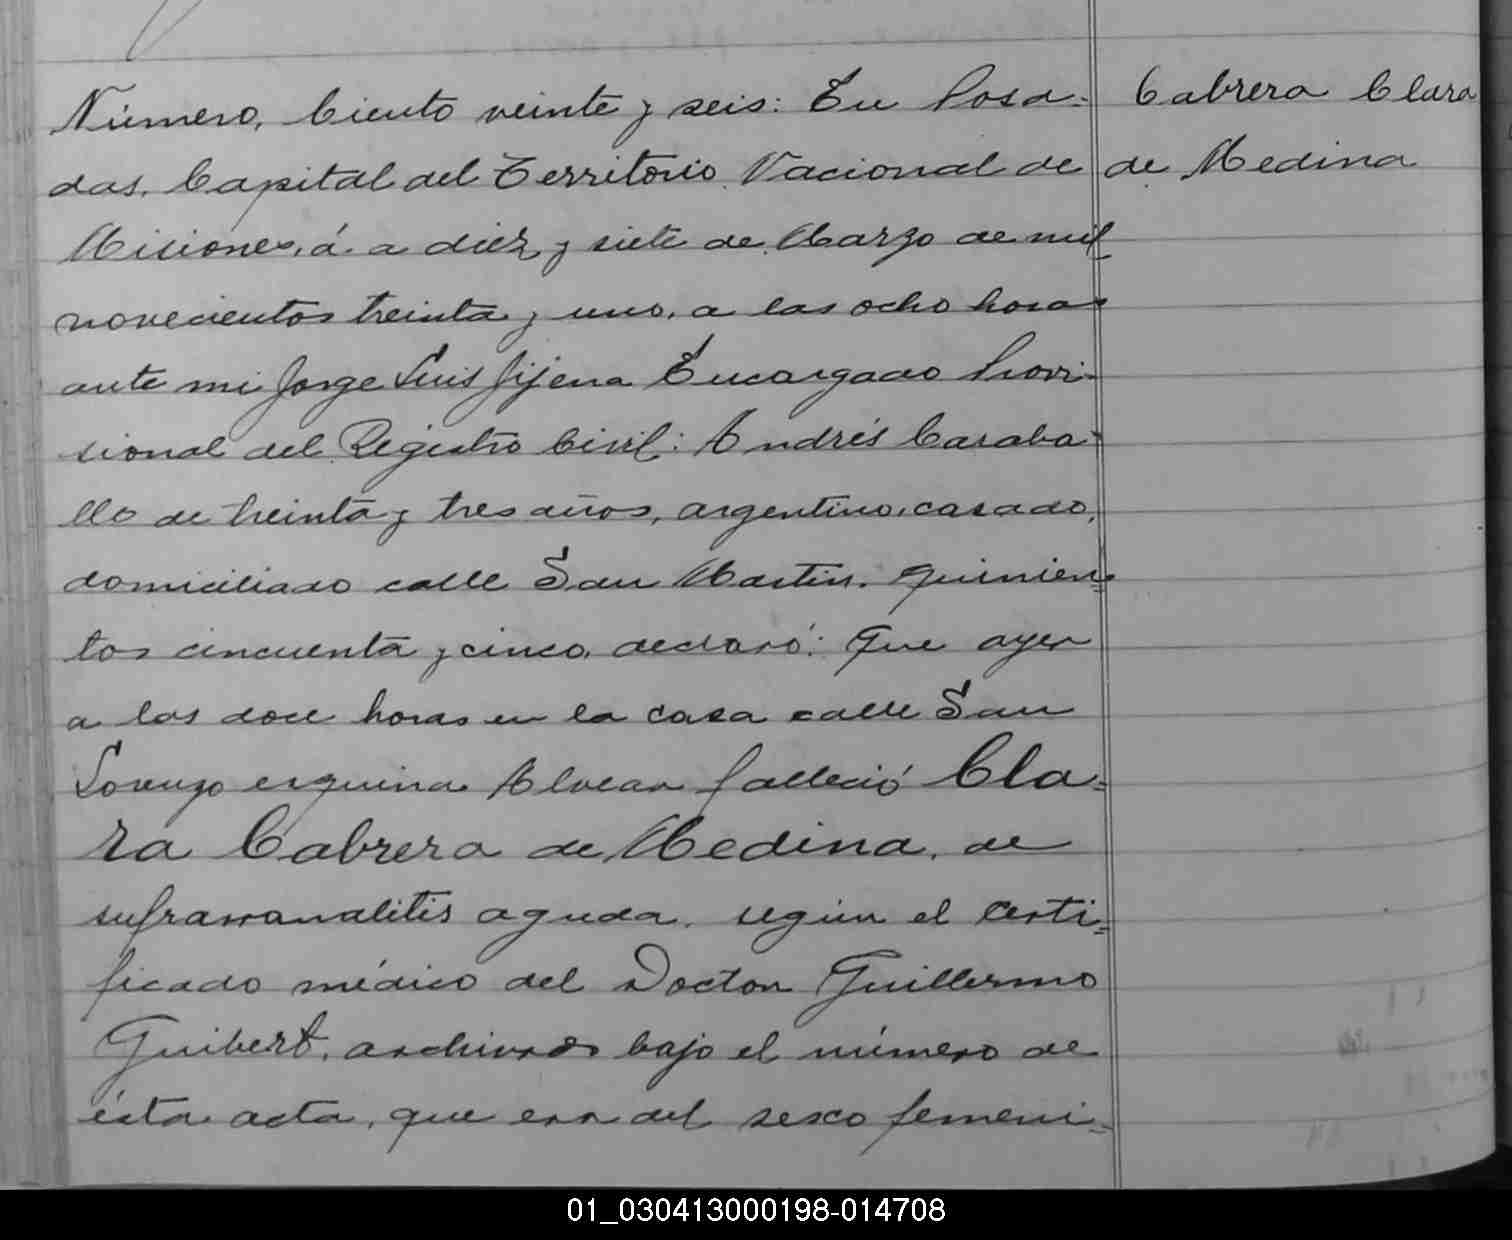 Número, Ciento veinte y seis: En Posa- Cabrera Clara
das, Capital del Territorio Nacional de de Medina
Misiones, á a diez y siete de Marzo de mil
novecientos treinta y uno, a las ocho horas
ante mi Jorge Luis Jijena Encargado Provi-
sional del Registro Civil: Andrés Caraba-
llo de treinta y tres años, argentino, casado,
domiciliado calle San Martin, quinien=
tos cincuenta y cinco, declaró: Que ayer
a las doce horas en la casa calle San
Lorenzo esquina Alvear falleció Cla=
ra Cabrera de Medina, de
aguda, según el certi=
ficado médico del Doctor Guillermo
Guibert, archivado bajo el número de
ésta acta, que era del sexo femeni=
01_030413000198-014708